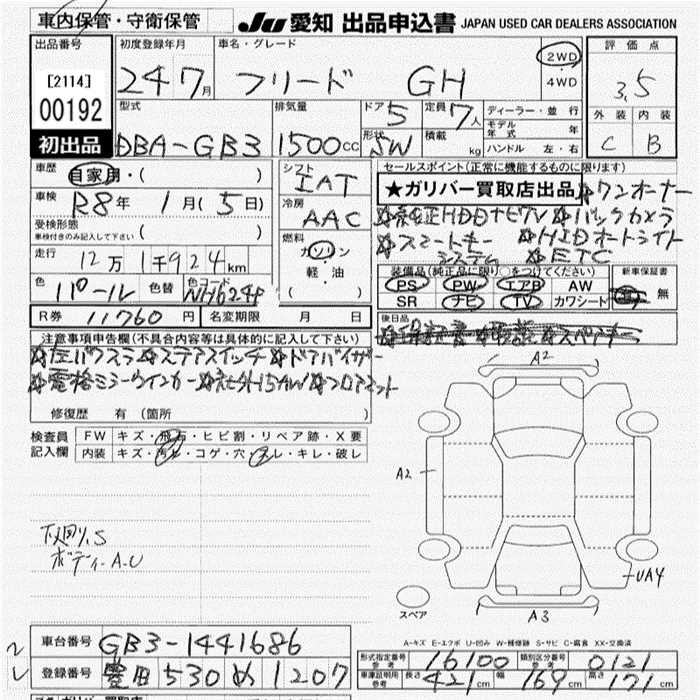 車内保管・守衛保管
JU 愛知 出品申込書 JAPAN USED CAR DEALERS ASSOCIATION
出品番号 初度登録年月 車名・グレード 2WD 評価点
[2114] 24 7月 フリード GH 4WD 3.5
00192 型式 排気量 ドア 5 定員 7人 ディーラー・並行 外装 内装
モデル年式 年
初出品 DBA-GB3 1500cc 形状 SW 積載 kg ハンドル 左・右 C B
車歴 自家用・( ) シフト IAT セールスポイント(正常に機能するものに限ります)
★ガリバー買取店出品 ☆ワンオーナー
車検 R8年 1月(5日) 冷房 AAC ☆純正HDDナビTV ☆バックカメラ
受検形態 車検付きのみ記入して下さい ( ) 燃料 ガソリン ☆スマートキーシステム ☆HIDオートライト
走行 12万1千924km 軽・油 ☆ETC
装備品(純正品に限り○をつけてください) 新車保証書
色 パール 色替 色コード NH624P ( ) PS PW エアB AW 有 無
SR ナビ TV カワシート
R券 11760円 名変期限 月 日 後日品
注意事項申告欄(不具合内容等は具体的に記入して下さい) ☆保証書 ☆取説 ☆スペアキー
☆左パワスラ☆ステアスイッチ☆ドアバイザー
☆電格ミラーウインカー☆社外15AW☆フロアマット
修復歴 有 (箇所 )
検査員 FW キズ・飛石・ヒビ割・リペア跡・X要
記入欄 内装 キズ・汚レ・コゲ・穴・スレ・キレ・破レ
A2
A2
下廻り.S
ボディ-A.U
UA4
スペア
A3
A-キズ E-エクボ U-凹み W-補修跡 S-サビ C-腐食 XX-交換済
車台番号 GB3-1441686
形式指定番号 参考 16100 類別区分番号 参考 0121
登録番号 豊田530め1207
車庫証明用 参考 長さ 421cm 幅 169cm 高さ 171cm
ガリバー買取店